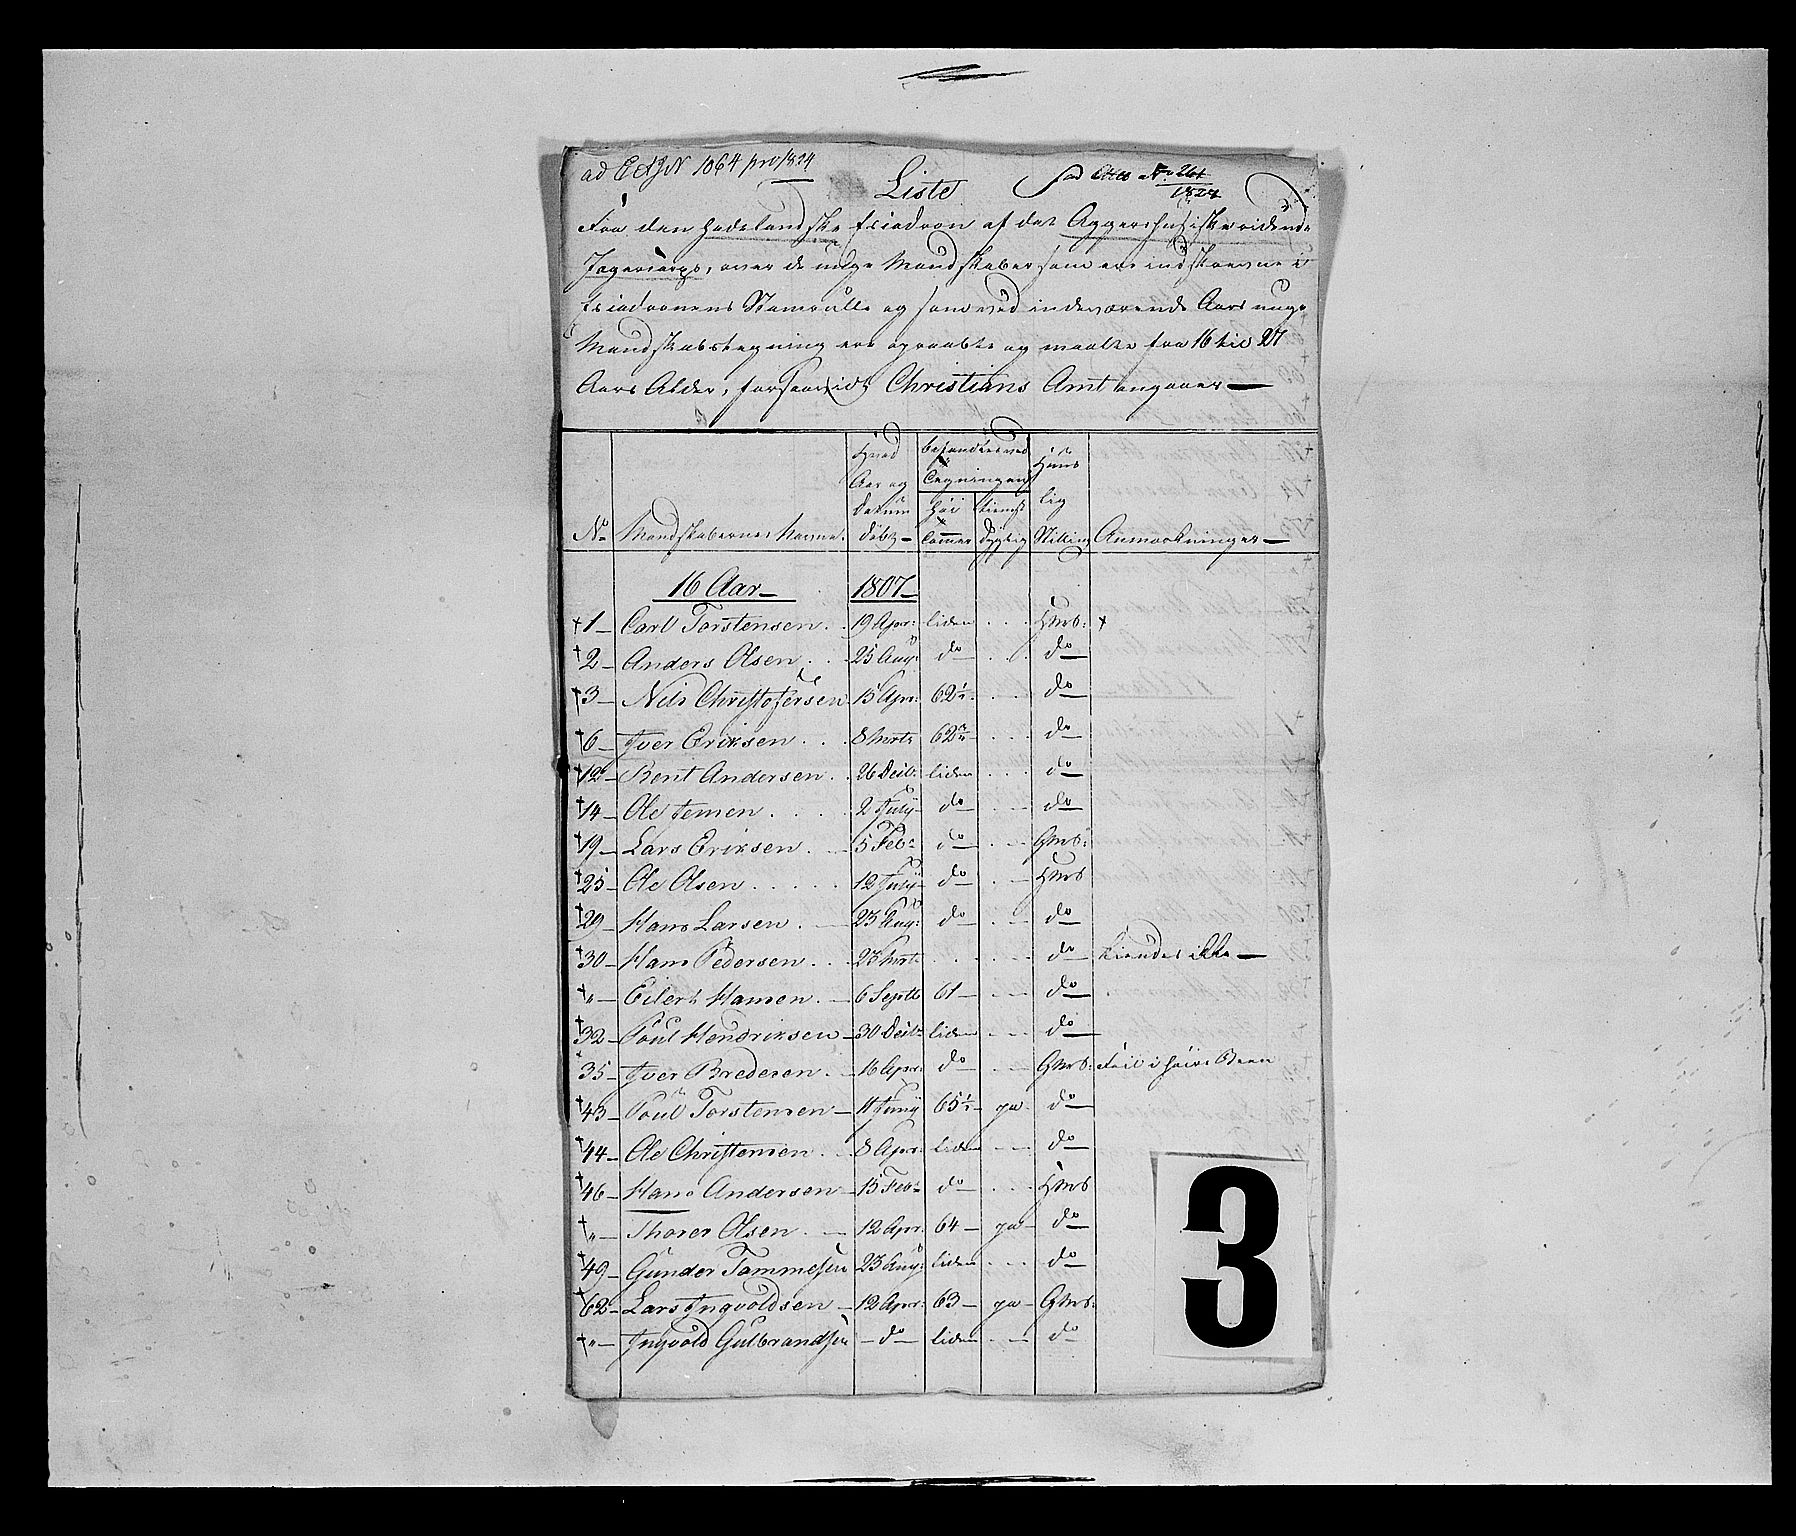 ad E A J N 1064 pro 1824
ad No 261
1824
Liste
Fra den Hadelandske Escadron af det Aggershusiske ridende
Jægercorps, over de unge Mandskaber som ere indskrevne i
Escadronens Stamrulle og som ved indeværende Aars unge
Mandskabstegning ere opraabte og maalte fra 16 til 27
Aars Alder, forsaavidt Christians Amt angaaer —
No Mandskabernes Navne. Hvad Aar og Datum født — befandtes ved Tegningen Høi Tommer tienst dygtig Huus lig Stilling Anmærkninger —
16 Aar — 1807 —
+ 1 — Carl Torstensen . . 19 Apr: liden . . . Hmd: +
+ 2 — Anders Olsen . . 25 Aug: do — . . . do
+ 3 — Nils Christofersen 15 Apr: 62½ . . . do
+ 6 — Iver Eriksen . . . 8 Marts 62 . . . do
+ 12 — Bent Andersen . 26 Decb: liden . . . do
+ 14 — Ole Jensen . . . . 2 July — do — . . . do
+ 19 — Lars Eriksen . — 5 Feb: do — . . . Gmd:
+ 25 — Ole Olsen . . . . . 12 July — do — . . — Hmd
+ 29 — Hans Larsen . — 23 Aug: do — . . — do
+ 30 — Hans Pedersen . . . 23 Marts . . . . . do kiendes ikke —
+ " — Eilert Hansen . — 6 Septb 61 — . . — do
+ 32 — Poul Hendriksen — 30 Decb: liden . . — do
+ 35 — Iver Bredesen . — 16 Apr: do — . . — Gmd: Feil i høire Been
+ 43 — Poul Torstensen — 11 Juny 65½ — ja — do
+ 44 — Ole Christensen . — 8 Apr: liden . . — do
+ 46 — Hans Andersen — 15 Feb: do — . . . Hmd
+ " — Thorer Olsen . — 12 Apr: 64 — ja — do
+ 49 — Gunder Tommesen 23 Aug: liden . . . do
+ 62 — Lars Ingvoldsen — 12 Apr: 63 — ja — Gmd:
+ " — Ingvold Gulbrandsen — do — liden . . — do
3